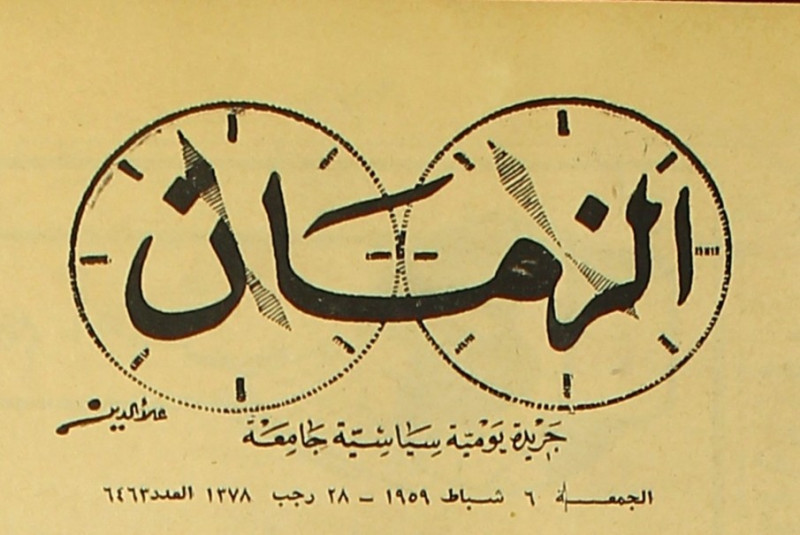 الزمان
علاءالدين
جريدة يومية سياسية جامعة
الجمعة ٦ شباط ١٩٥٩ - ٢٨ رجب ١٣٧٨ العدد ٦٤٦٣